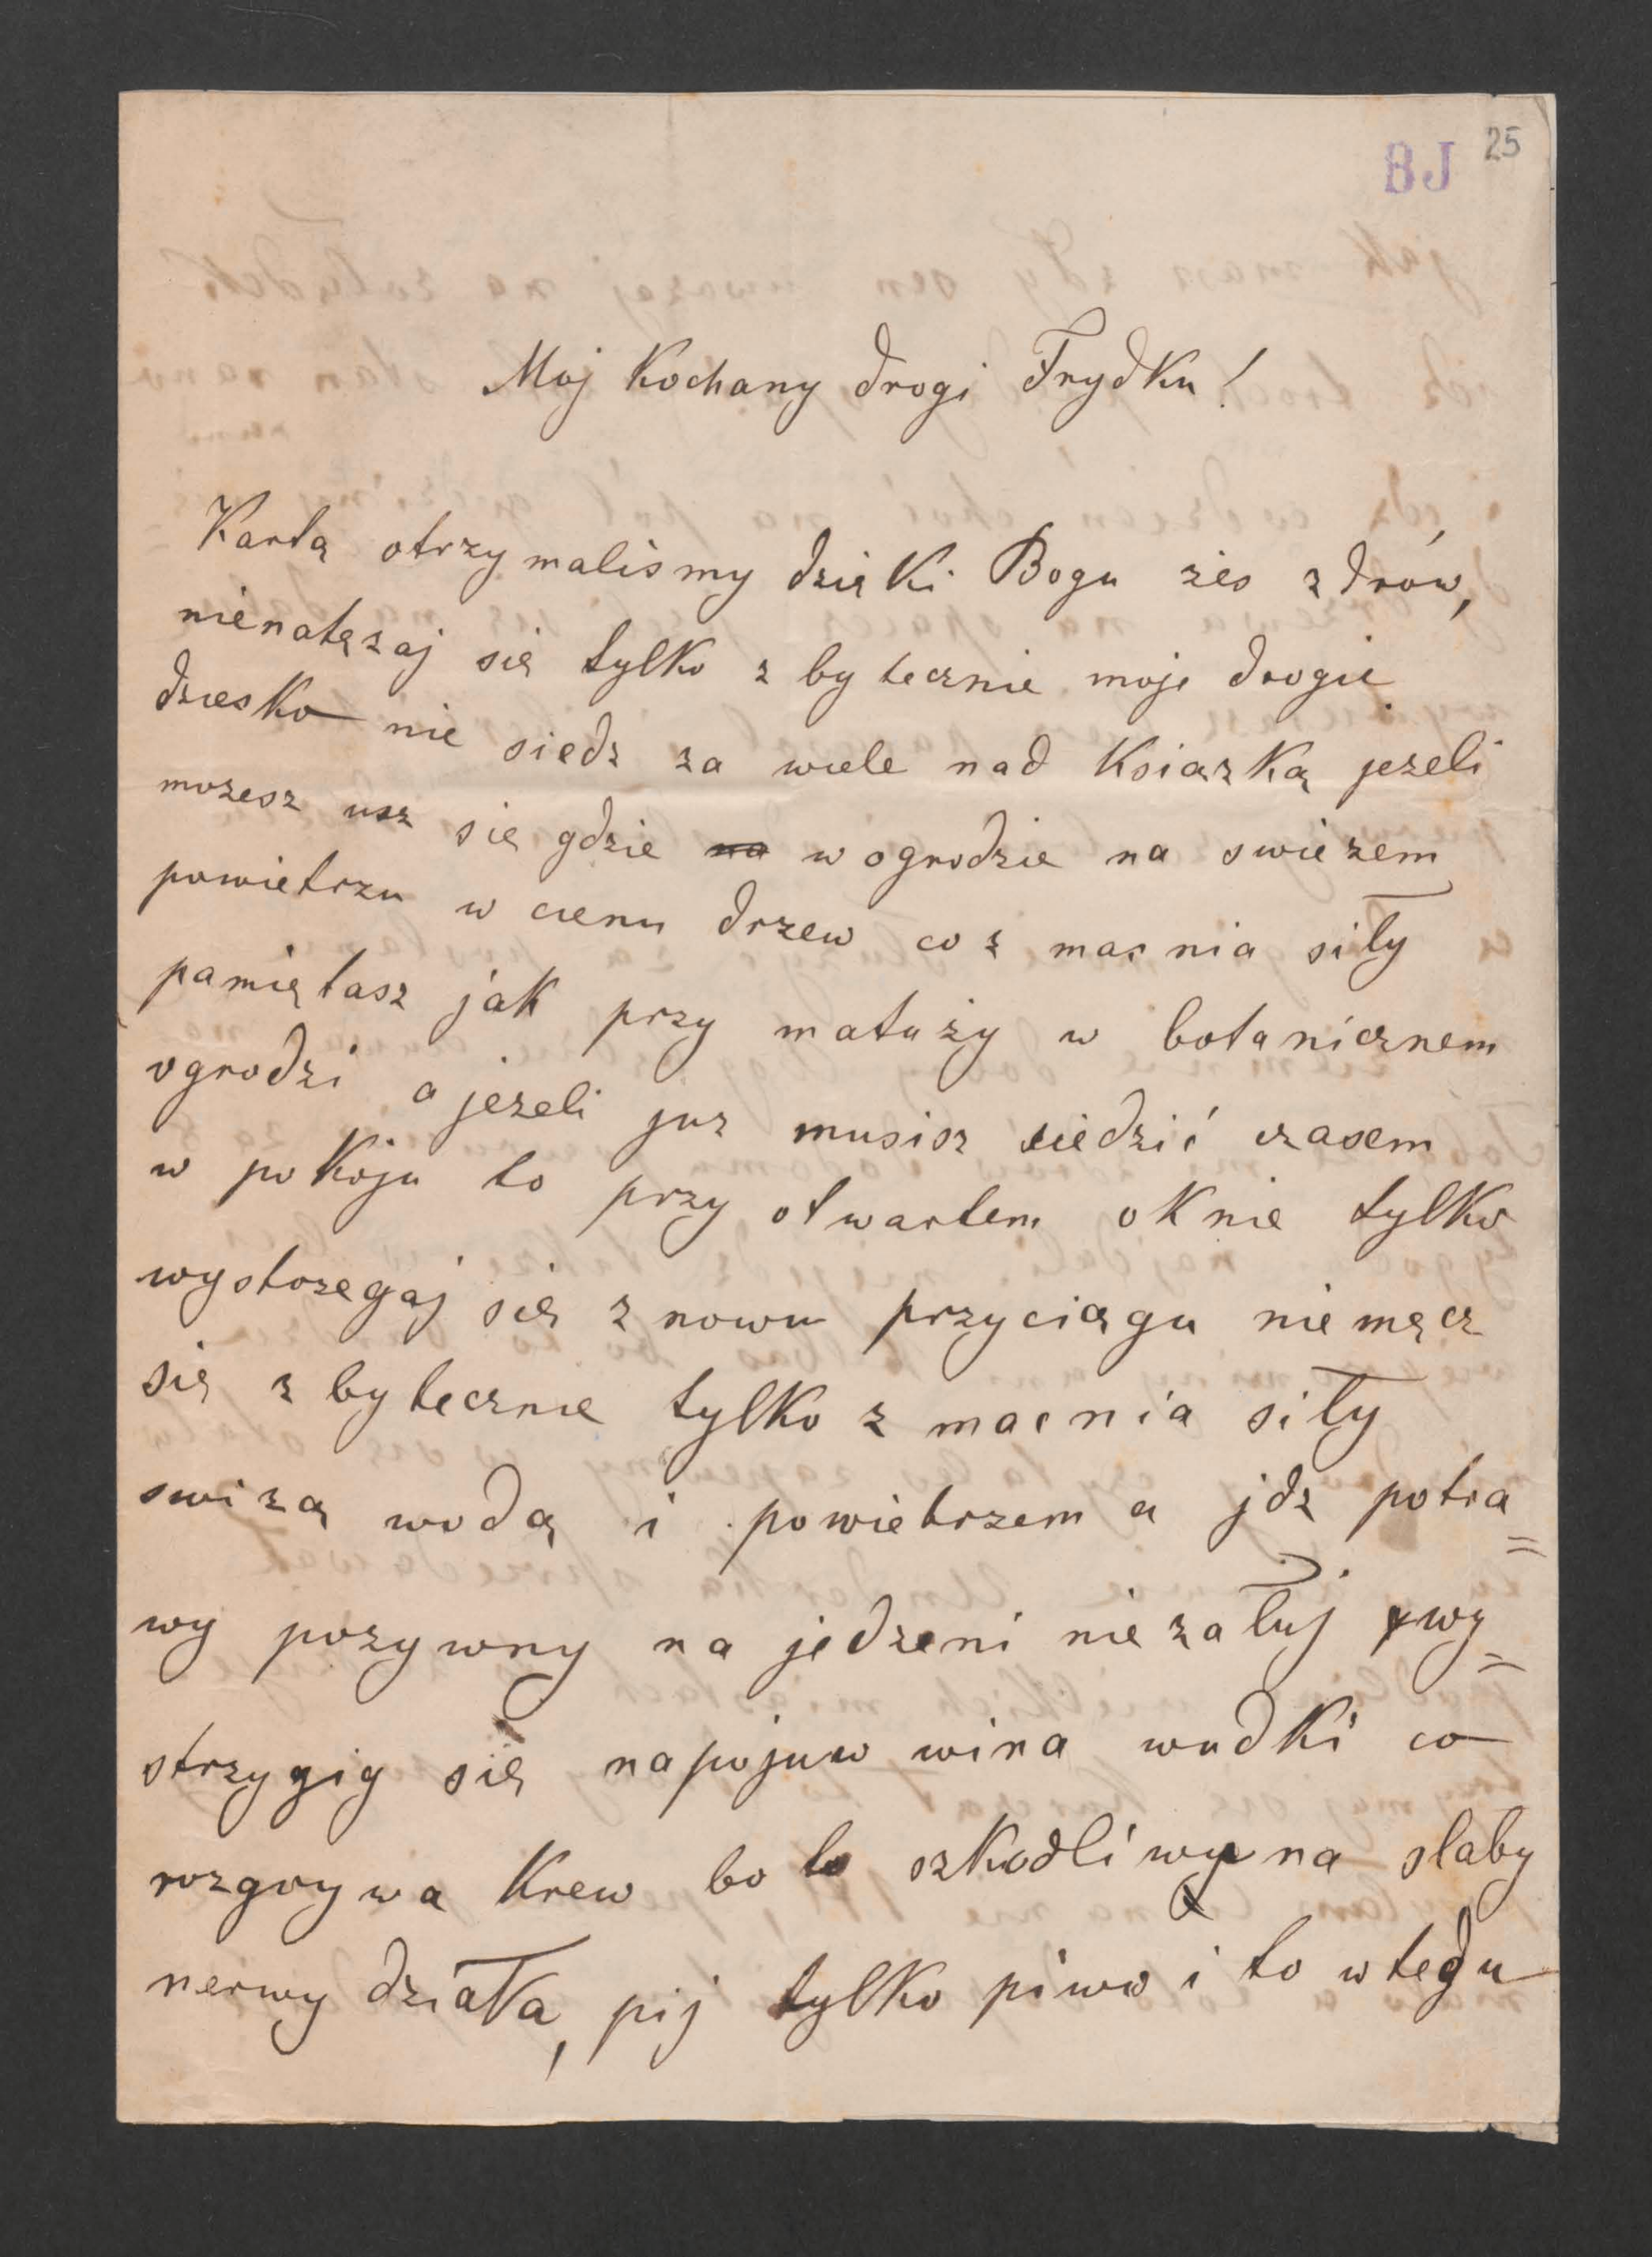 BJ 25
Moj Kochany drogi Frydku!
Kartą otrzymalismy dzięki Bogu żes zdrów,
nienatęzaj się tylko zbytecznie moje drogie
dziesko nie siedz za wiele nad Ksiazką jezeli
mozesz usz się gdzie na w ogrodzie na swiezem
powietrzu w cienu drzew co zmacnia siły
pamiętasz jak przy matuży w botanicznem
ogrodzi a jezeli juz musisz siedzić czasem
w pokoju to przy otwartem oknie tylko
wystozegaj się znowu przyciągu niemącz
się zbytecznie tylko zmacnia siły
swizą wodą i powietrzem a jdz potra=
wy pozywny na jedzeni niezałuj wy=
strzygig się napojuw wina wudki co
rozgrywa Krew bo to szkodliwy na slaby
nerwy działa, pij tylko piwo i to wtedu